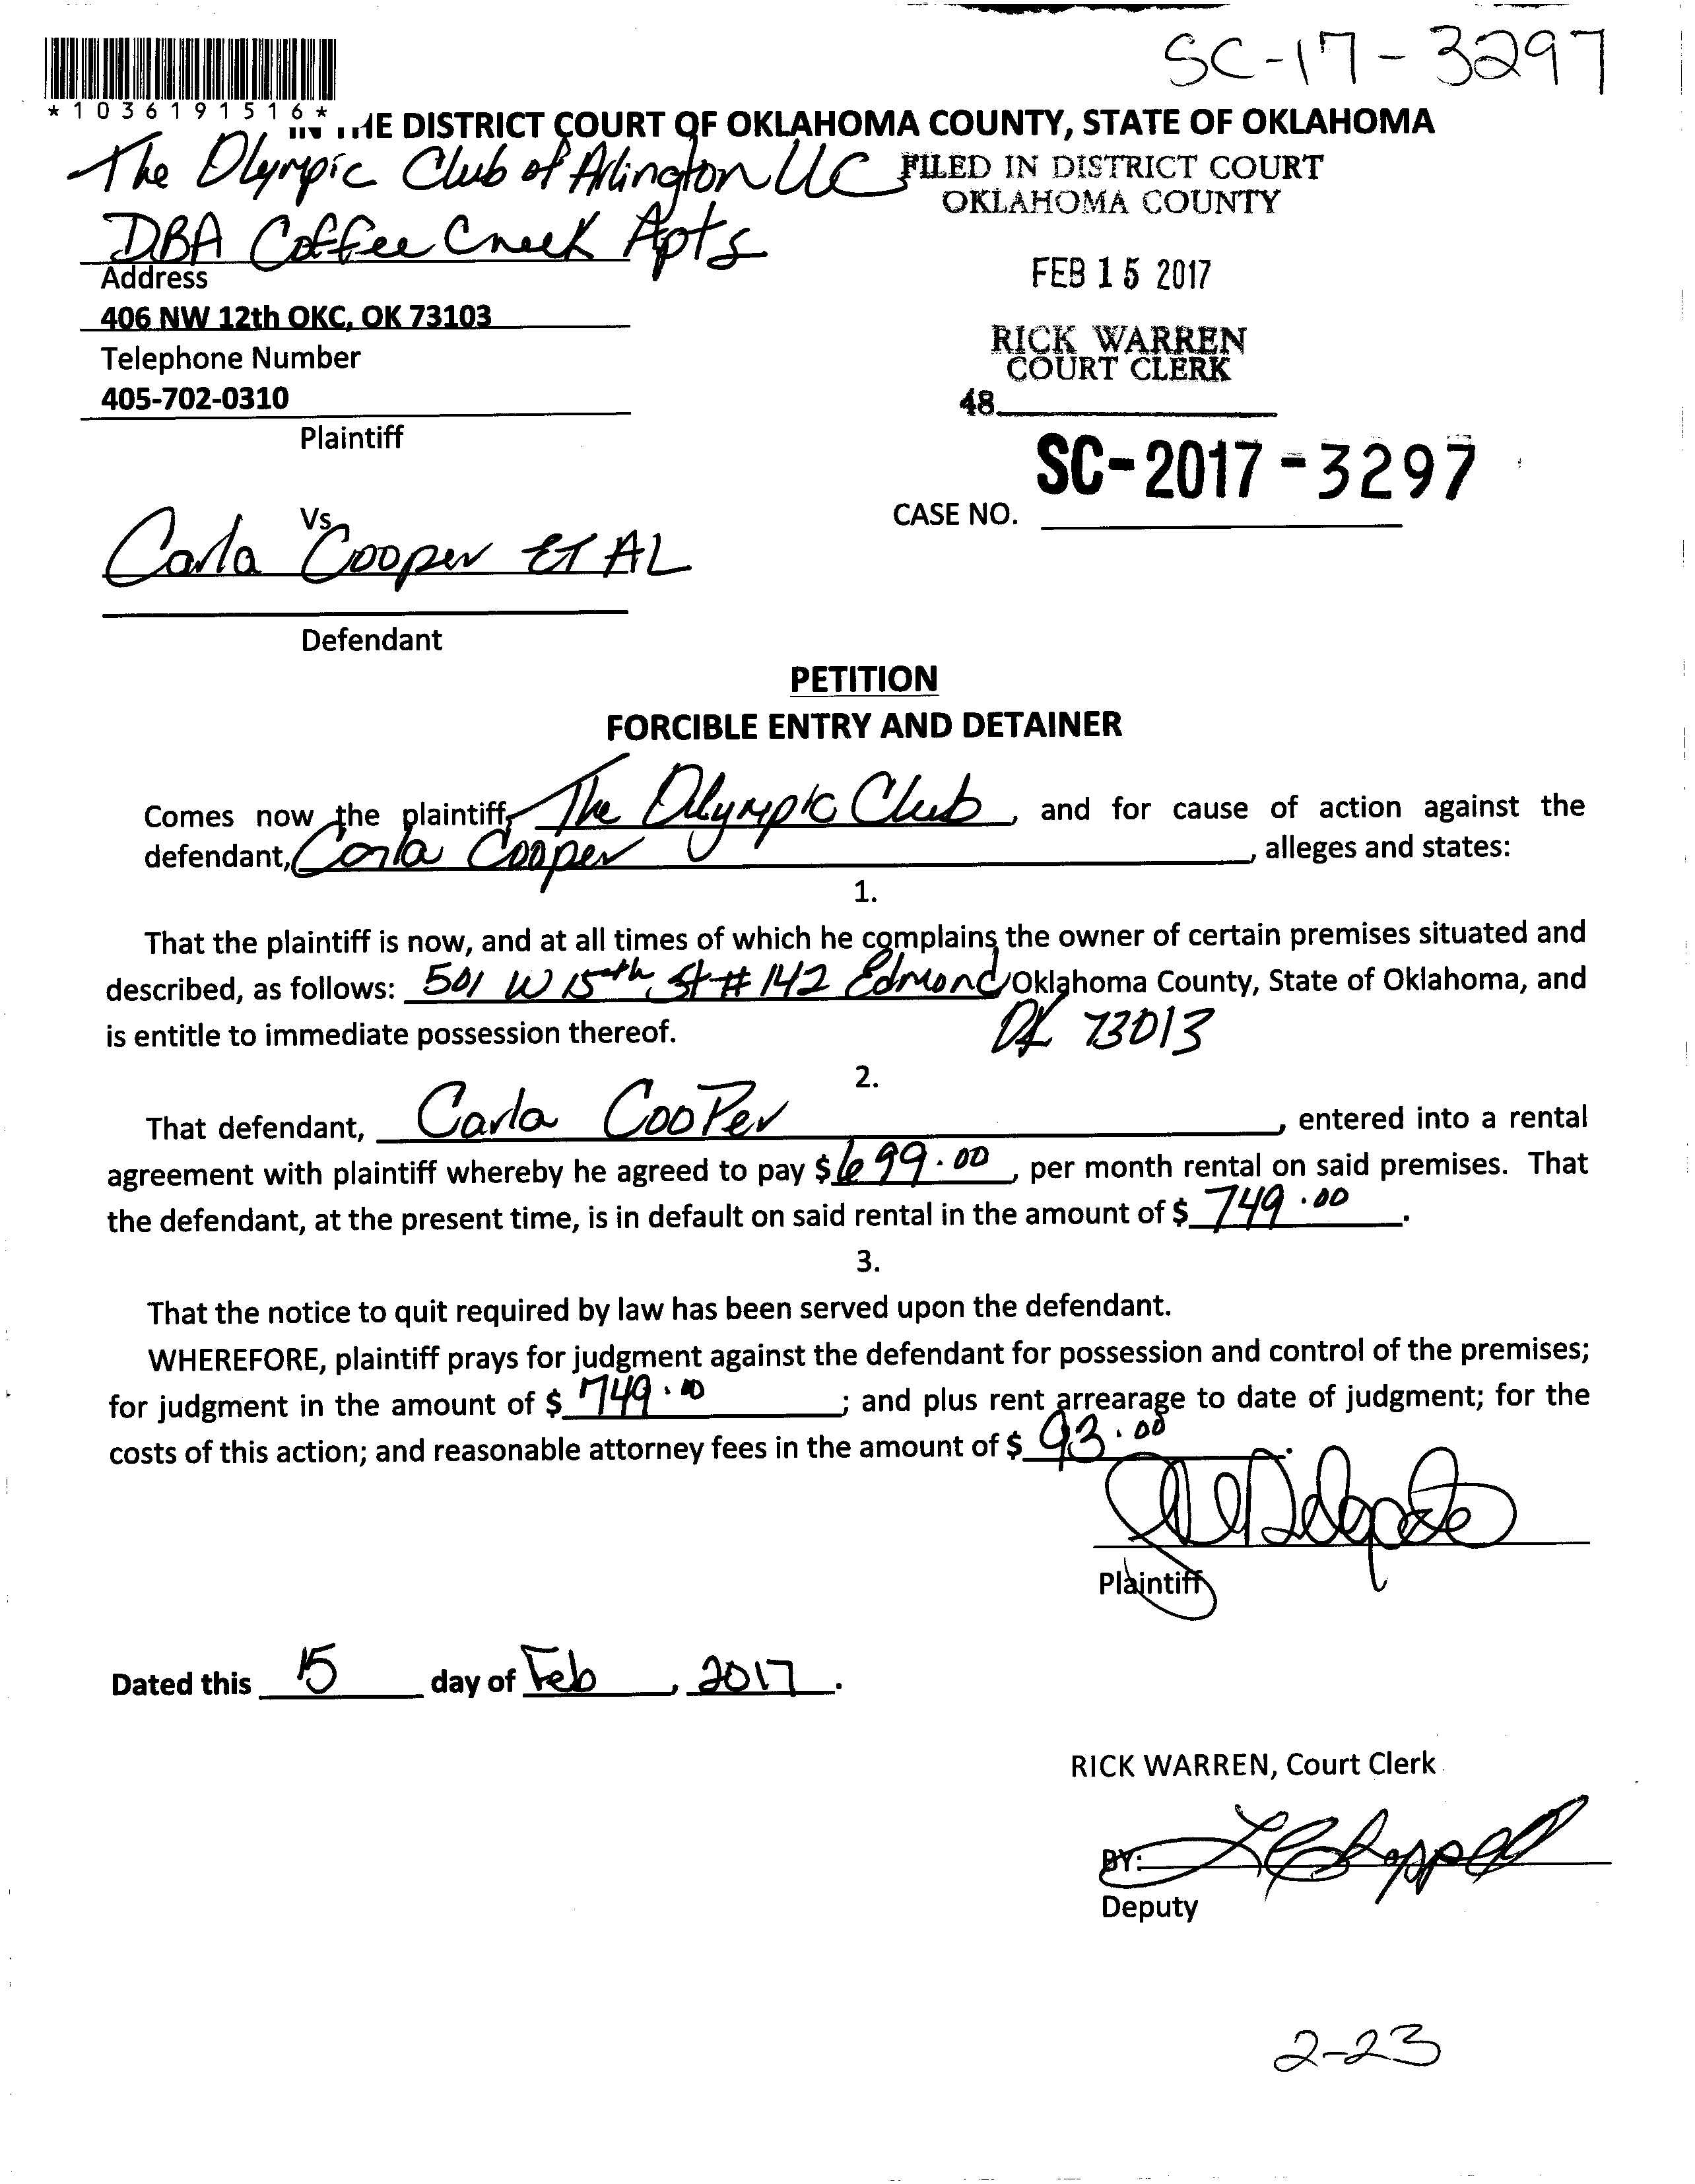 SC-17-3297
*1036191516*
IN THE DISTRICT COURT OF OKLAHOMA COUNTY, STATE OF OKLAHOMA
The Olympic Club of Arlington LLC
FILED IN DISTRICT COURT
OKLAHOMA COUNTY
DBA Coffee Creek Apts
Address
FEB 15 2017
406 NW 12th OKC, OK 73103
Telephone Number
RICK WARREN
COURT CLERK
405-702-0310
48
Plaintiff
SC-2017-3297
CASE NO.
Vs
Carla Cooper ET AL
Defendant
PETITION
FORCIBLE ENTRY AND DETAINER
Comes now the plaintiff, The Olympic Club, and for cause of action against the
defendant, Carla Cooper, alleges and states:
1.
That the plaintiff is now, and at all times of which he complains the owner of certain premises situated and
described, as follows: 501 W 15th St # 142 Edmond Oklahoma County, State of Oklahoma, and
is entitle to immediate possession thereof. OK 73013
2.
That defendant, Carla Cooper, entered into a rental
agreement with plaintiff whereby he agreed to pay $ 699.00, per month rental on said premises. That
the defendant, at the present time, is in default on said rental in the amount of $ 749.00.
3.
That the notice to quit required by law has been served upon the defendant.
WHEREFORE, plaintiff prays for judgment against the defendant for possession and control of the premises;
for judgment in the amount of $ 749.00; and plus rent arrearage to date of judgment; for the
costs of this action; and reasonable attorney fees in the amount of $ 93.00.
Plaintiff
Dated this 15 day of Feb, 2017.
RICK WARREN, Court Clerk
BY:
Deputy
2-23